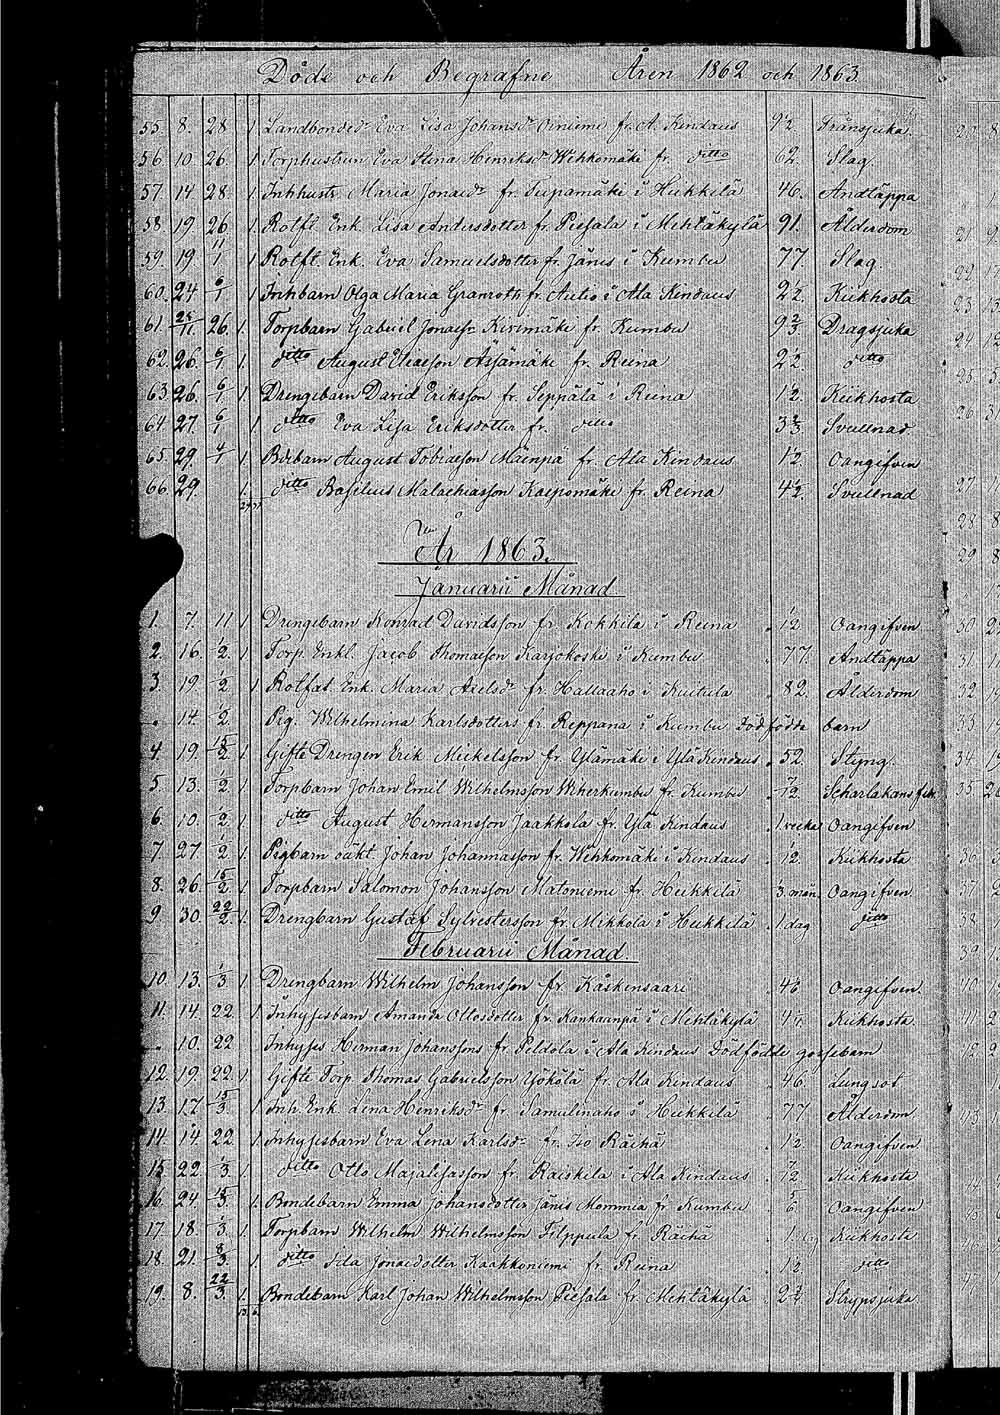 Döde och Begrafne Åren 1862 och 1863
55. 8. 28 1 Landbonded. Eva Lisa Johansdr Oiniemi fr. A. Kindaus 9½ Fränsjuka.
56. 10. 26. 1 Torphustrun Eva Stina Henriksdr Wehkomäki fr. ditto 62. Slag.
57. 14. 28. 1. Inhhustr. Maria Jonaedr fr. Tupamäki i Heikkilä 46. Andtäppa
58. 19. 26 1. Rotft. Enk. Lisa Andersdotter fr. Piesala i Mehtäkylä 91. Ålderdom
59. 19 11/1 1 Rotft. Enk. Eva Samuelsdotter fr. Jänis i Kumbu 77. Slag.
60. 24 6/1 1 Inhbarn Olga Maria Granroth fr. Autio i Ala Kindaus 2½. Kikhosta
61. 25/11. 26. 1. Torpbarn Gabriel Jonaess. Kivimäki fr. Kumbu 9⅔ Dragsjuka
62. 26. 6/1. 1. ditto August Eliaesson Äijämäki fr. Reina 2½. ditto
63. 26. 6/1 1. Drengebarn David Eriksson fr. Seppälä i Reina ½. Kikhosta
64. 27. 6/1 1. ditto Eva Lisa Eriksdotter fr. ditto 3⅔. Svullnad.
65. 29. 4/1 1. Bdebarn August Tobiaeson Mäenpä fr. Ala Kindaus ½. Oangifven
66. 29. 1. ditto Basilius Malachiasson Kaepomäki fr. Reina 4½. Svullnad
År 1863.
Januarii Månad
1. 7. 11 1 Drengebarn Konrad Davidsson fr. Kokkila i Reina ½ Oangifven
2. 16. 1/2. 1 Torp. Enkl. Jacob Thomaeson Karjokoski i Kumbu 77. Andtäppa
3. 19. 1/2 1 Rotfat. Enk. Maria Axelsdr fr. Hallaaho i Kuitula 82. Ålderdom
14. 1/2. Pig. Wilhelmina Karlsdotters fr. Reppana i Kumbu Dödfödda barn
4. 19. 15/2. 1. Gifte Drengen Erik Mickelsson fr. Ylämäki i Ylä Kindaus 52. Styng.
5. 13. 1/2. 1 Torpbarn Johan Emil Wilhelmsson Wiherkumbu fr. Kumbu 7/12. Scharlakansfeb.
6. 10. 1/2. 1. ditto August Hermansson Jaakkola fr. Ylä Kindaus 1 vecka Oangifven
7. 27. 1/2. 1. Pigbarn oäkt. Johan Johannasson fr. Wehkomäki i Kindaus ½. Kikhosta
8. 26. 15/2. 1. Torpbarn Salomon Johansson Matoniemi fr. Heikkilä 3. mån. Oangifven
9. 30. 22/2. 1. Drengbarn Gustaf Sylvestersson fr. Mikkola i Heikkilä 1 dag ditto
Februarii Månad.
10. 13. 1/3 1. Drengbarn Wilhelm Johansson fr. Kaskensaari Oangifven.
11. 14. 22. 1. Inhysesbarn Amanda Ottosdotter fr. Kankaanpä i Mehtäkylä Kikhosta.
10. 22 Inhyses Herman Johanssons fr. Peldola i Ala Kindaus Dödfödde gossebarn
12. 19. 22 1. Gifte Torp. Thomas Gabrielsson Yökölä fr. Ala Kindaus 46. Lungsot
13. 17 15/3. 1 Inh. Enk. Lena Henriksdr fr. Samulinaho i Heikkilä 77. Ålderdom.
14. 14. 22. 1. Inhysesbarn Eva Lena Karlsdr fr. Iso Räihä ½ Oangifven.
15 22. 1/3. 1. ditto Otto Majalisasson fr. Raiskila i Ala Kindaus 7/12 Kikhosta
16. 24. 15/3. 1. Bondebarn Emma Johansdotter Jänis Mommia fr. Kumbu 5/6. Oangifven
17. 18. 1/3. 1. Torpbarn Wilhelm Wilhelmsson Filppula fr. Räihä Kikhosta
18. 21. 8/3. 1. ditto Ida Jonaedotter Kaakkoniemi fr. Reina ½ ditto
19. 8. 22/3. 1. Bondebarn Karl Johan Wilhelmsson Piesala fr. Mehtäkylä Strypsjuka